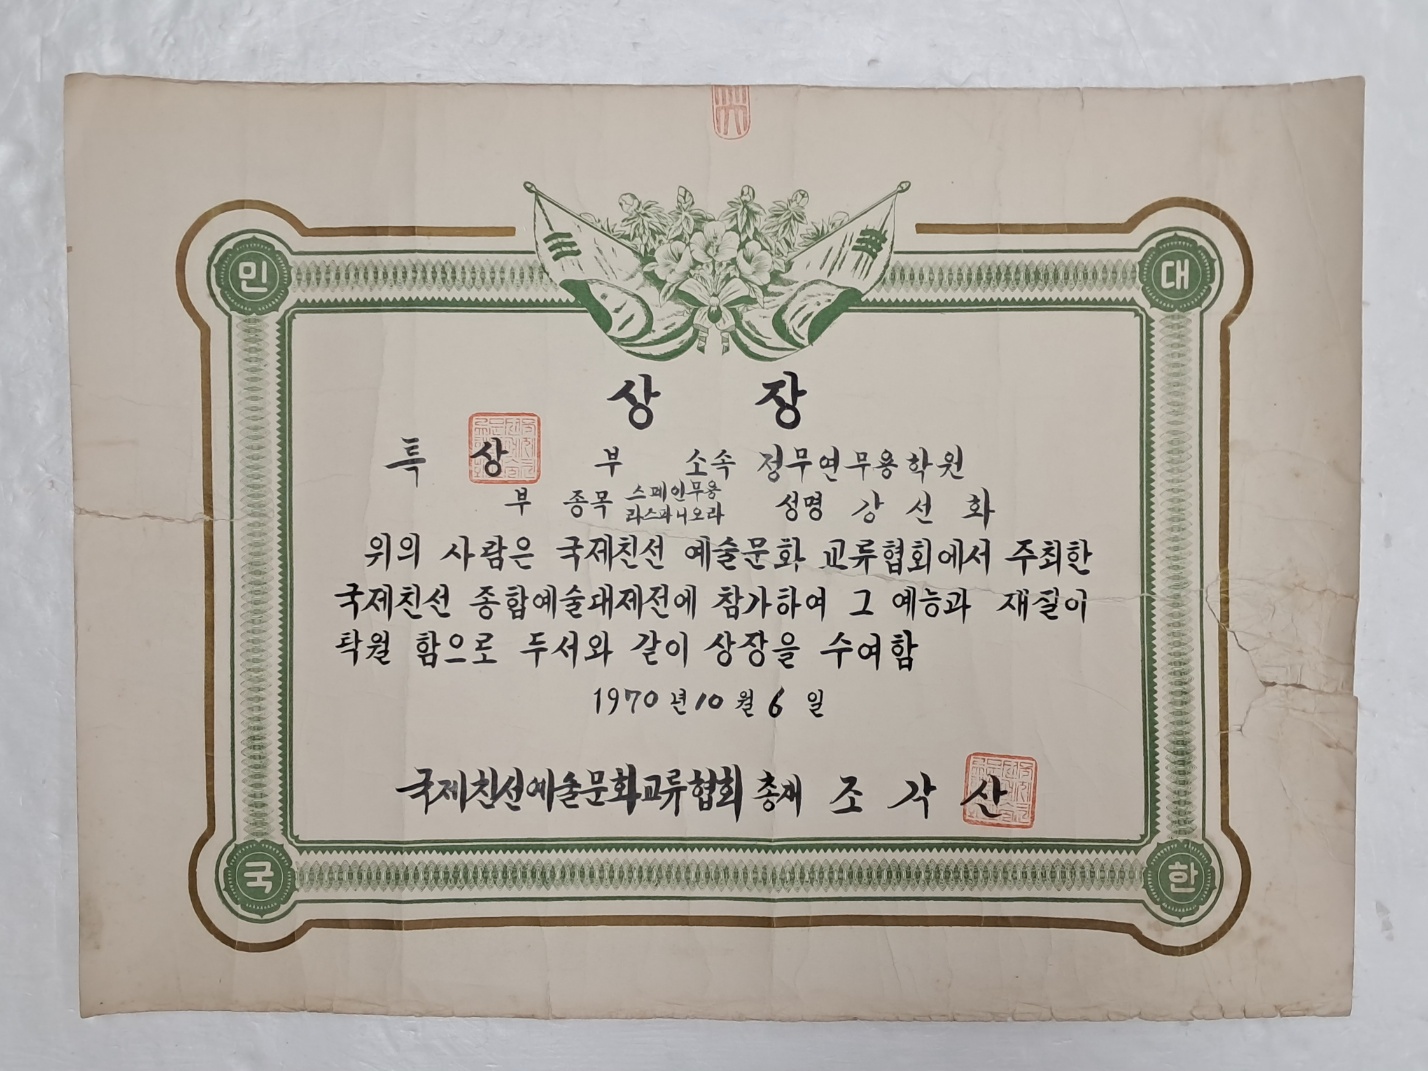 민 대
상 장
특 상 부 소속 정무연무용학원
부 종목 스페인무용 라스파니오라 성명 강 선 화
위의 사람은 국제친선 예술문화 교류협회에서 주최한
국제친선 종합예술대제전에 참가하여 그 예능과 재질이
탁월 함으로 두서와 같이 상장을 수여함
1970년 10월 6일
국제친선예술문화교류협회 총재 조 각 산
국 한